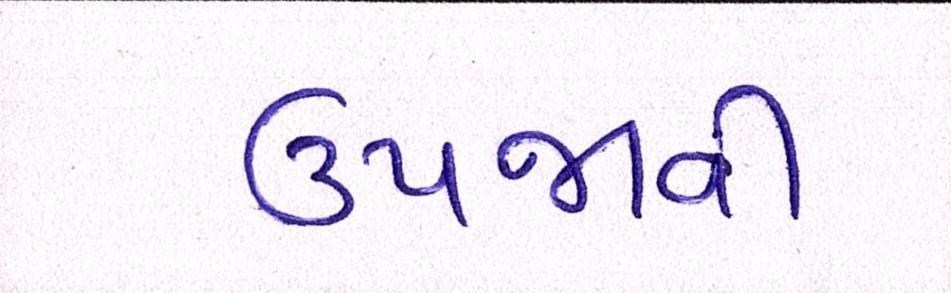 ઉપજાવી